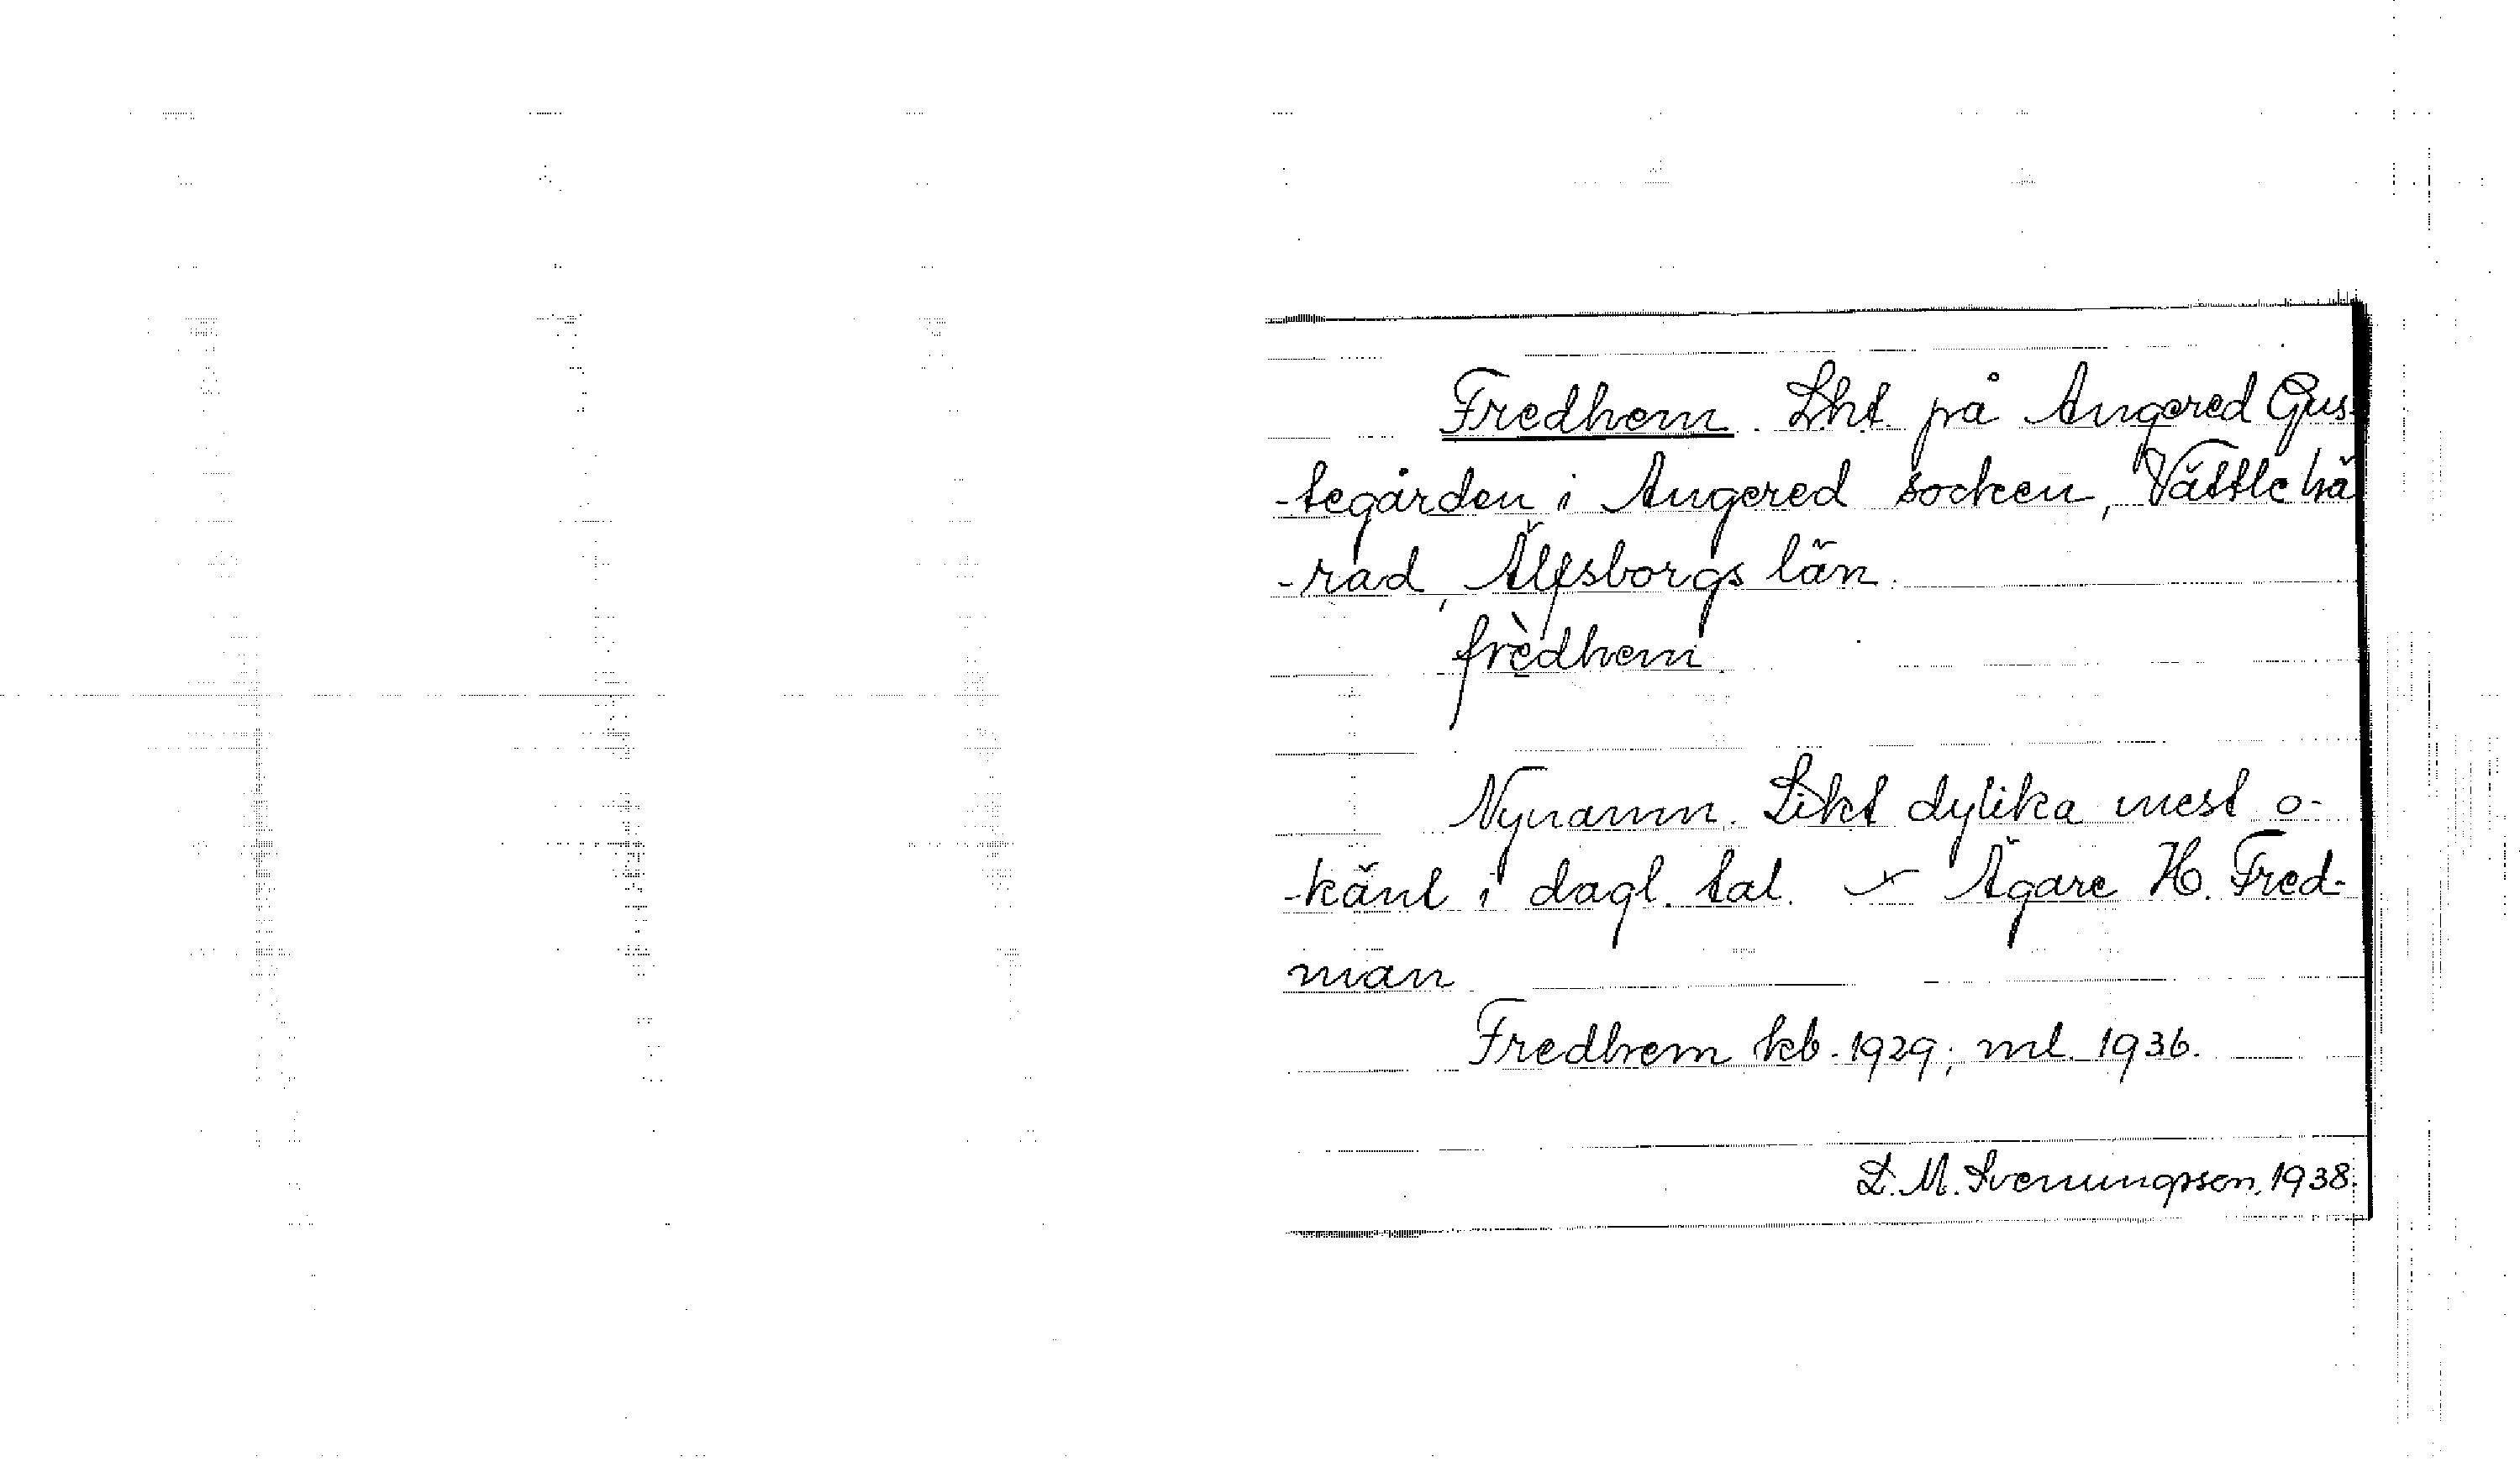 Fredhem. Lht. på Angered Gus-
-tegården i Angered socken, Vättle hä
-rad, Älfsborgs län.
frèdhem.
Nynamn. Likt dylika mest o-
-känt i dagl. tal. Ägare H. Fred-
man
Fredhem kb. 1929; ml. 1936.
L. M. Svenungsson, 1938.